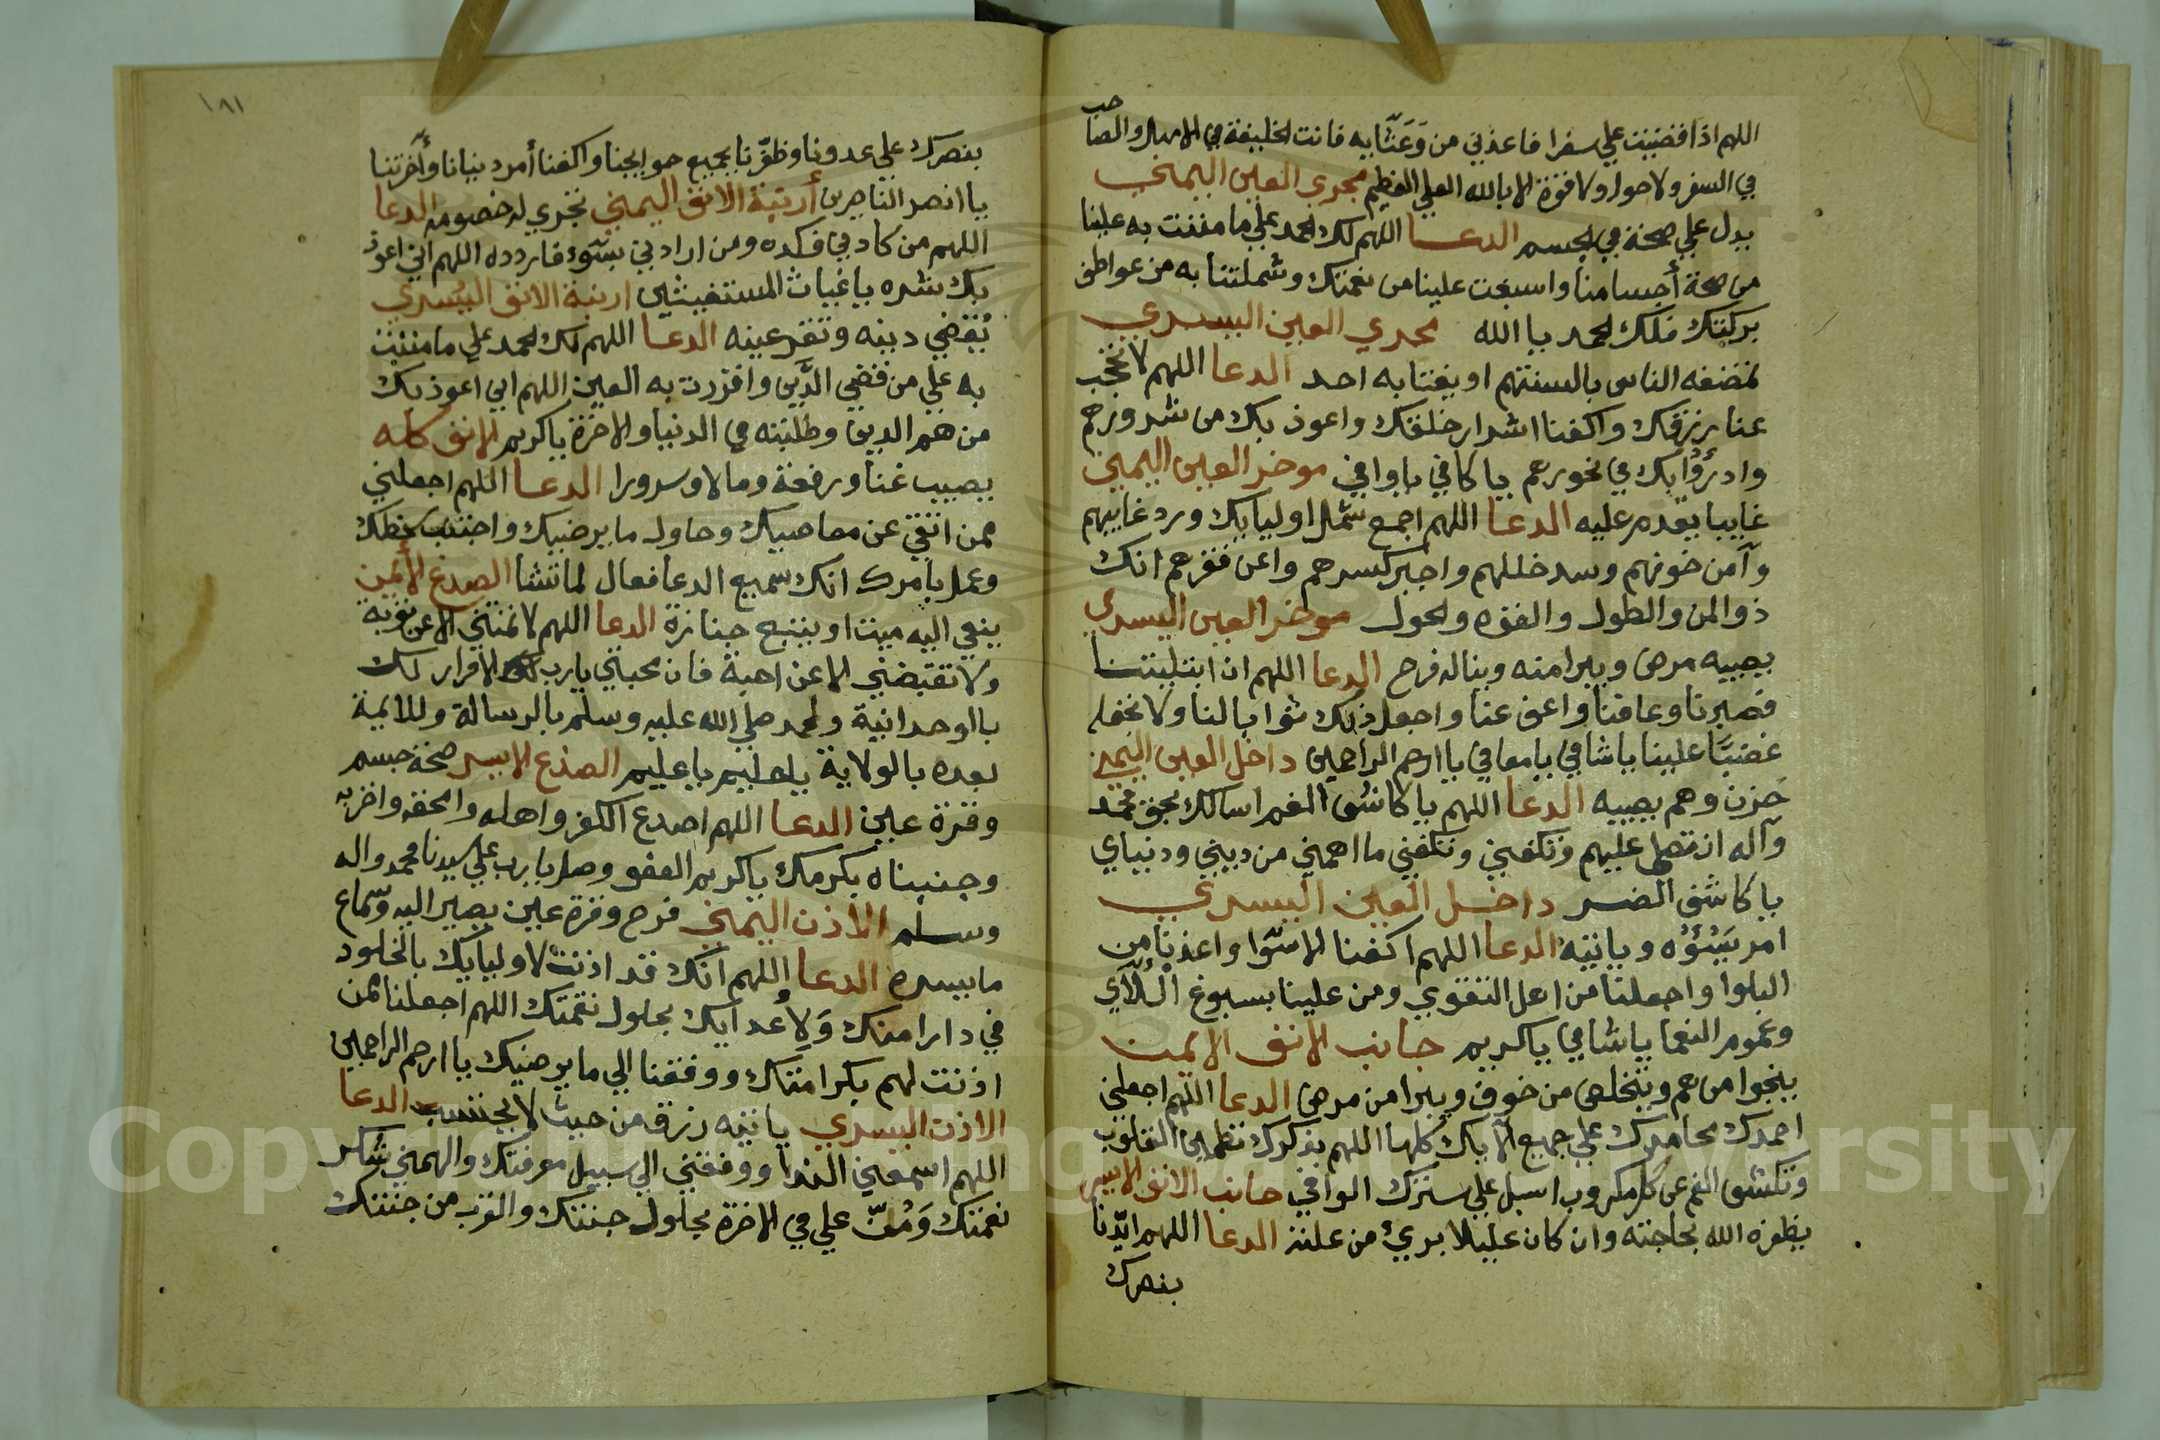 اللهم اذا قضيت علي سفرا فاعذني من وَعَثَايه فانت الخليفة في الاهل والصاحب
في السفر ولا حول ولا قوة الا بالله العلي العظيم مجري العين اليمني
يدل علي صحة في الجسم الدعا اللهم لك الحمد علي ما مننت به علينا
من صحة أجسامنا واسبغت علينا من نعمتك وشملتنا به من عواطف
بركتك فلك الحمد يا الله مجري العين اليسري
تمضغه الناس بالسنتهم او يغتابه احد الدعا اللهم لا تحجب
عنا رزقك واكفنا اشرار خلقك واعوذ بك من شرورهم
وادرؤا بك في نحورهم يا كافي يا وافي موخر العين اليمني
غايبا يقدم عليه الدعا اللهم اجمع شمل اوليايك ورد غايبهم
وآمن خوفهم وسد خللهم واجبر كسرهم واغن فقرهم انك
ذو المن والطول والقوه والحول موخر العين اليسري
يصيبه مرض ويبرا منه ويناله فرح الدعا اللهم ان ابتليتنا
فصبرنا وعافنا واعف عنا واجعل ذلك ثوابا لنا ولا تجعله
غضبًا علينا يا شافي يا معافي يا ارحم الراحمين داخل العين اليمين
حزن وهم يصيبه الدعا اللهم يا كاشف الغم اسالك بحق محمد
وآله ان تصلي عليهم وتكفني ما اهمني من ديني ودنياي
يا كاشف الضر داخل العين اليسري
امر يَسُؤه وياتيه الدعا اللهم اكفنا الاسوا واعذنا من
البلوا واجعلنا من اهل التقوي ومن علينا بسبوغ الآلاي
وعموم النعما يا شافي يا كريم جانب الانف الايمن
ينجوا من هم ويتخلص من خوف ويبرا من مرض الدعا اللهم اجعلني
احمدك بمحامدك علي جميع آلايك كلها اللهم بذكرك تطمين القلوب
وتكشف الغم عن كل مكروب اسبل علي سترك الوافي جانب الانف الايسر
يظفره الله بحاجته وان كان عليلا بريء من علته الدعا اللهم ايّدنا
بنصرك
١٨١
بنصرك علي عدونا وظفّرنا بجميع حوايجنا واكفنا أمر دنيانا وآخرتنا
يا انصر الناصرين أرنبة الانف اليمني تجري له خصومه الدعا
اللهم من كادني فكده ومن ارادني بسوء فاردده اللهم اني اعوذ
بك من شره يا غياث المستغيثين ارنبة الانف اليسري
يُقضي دينه وتقر عينه الدعا اللهم لك الحمد علي ما مننت
به علي من قضي الدَّين واقررت به العين اللهم اني اعوذ بك
من هم الدين وطلبته في الدنيا والاخرة يا كريم الانف كله
يصيب غنا ورفعة ومالا وسرورا الدعا اللهم اجعلني
ممن اتقي عن معاصيك وحاول ما يرضيك واجتنب سخطك
وعمل بامرك انك سميع الدعا فعال لما تشا الصدغ الأيمن
ينعي اليه ميت او يتبع جنازة الدعا اللهم لا تمتني الا عن توبه
ولا تقبضني الا عن احبة فان محبتي يا رب لك الاقرار لك
بالوحدانية ولمحمد صلي الله عليه وسلم بالرسالة وللايمة
بعده بالولاية يا حليم يا عليم الصدغ الايسر صحة جسم
وقرة عين الدعا اللهم اصدع الكفر واهله وامحقه واخزيه
وجنبناه بكرمك يا كريم العفو وصل يا رب علي سيدنا محمد واله
وسلم الاذن اليمني فرح وقرة عين يصير اليه وسماع
ما يسره الدعا اللهم انك قد اذنت لاوليايك بالخلود
في دار امنك وَلِأعدايك بحلول نقمتك اللهم اجعلنا ممن
اذنت لهم بكرامتك ووفقنا الي ما يرضيك يا ارحم الراحمين
الاذن اليسري ياتيه رزق من حيث لا يحتسب الدعا
اللهم اسمعني الندا ووفقني الي سبيل معرفتك والهمني شكر
نعمتك وَمُنّ علي في الاخرة بحلول جنتك والقرب من جنتك